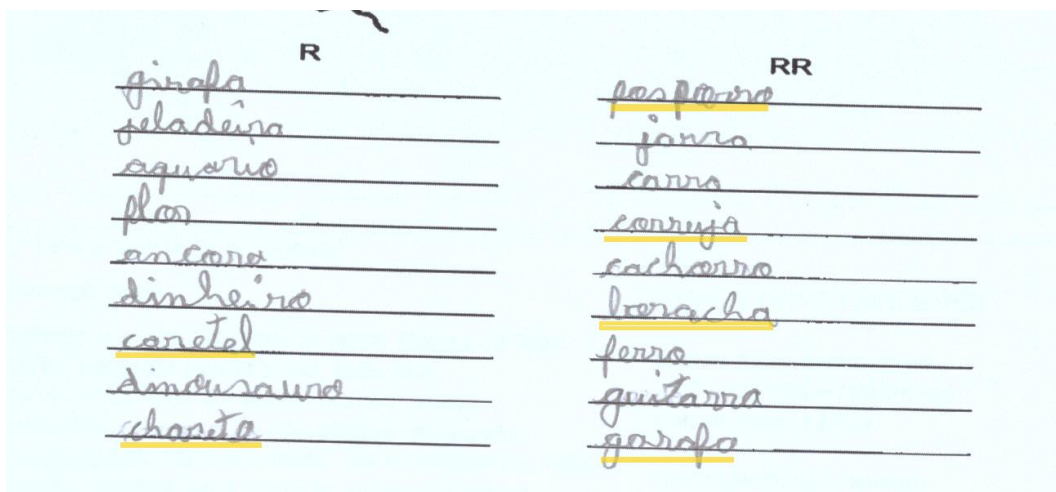 R
girafa
jeladeira
aquario
flor
ancora
dinheiro
caretel
dinousauro
chareta
RR
fosforro
jarra
carro
corruja
cachorro
boracha
ferro
guitarra
garafa